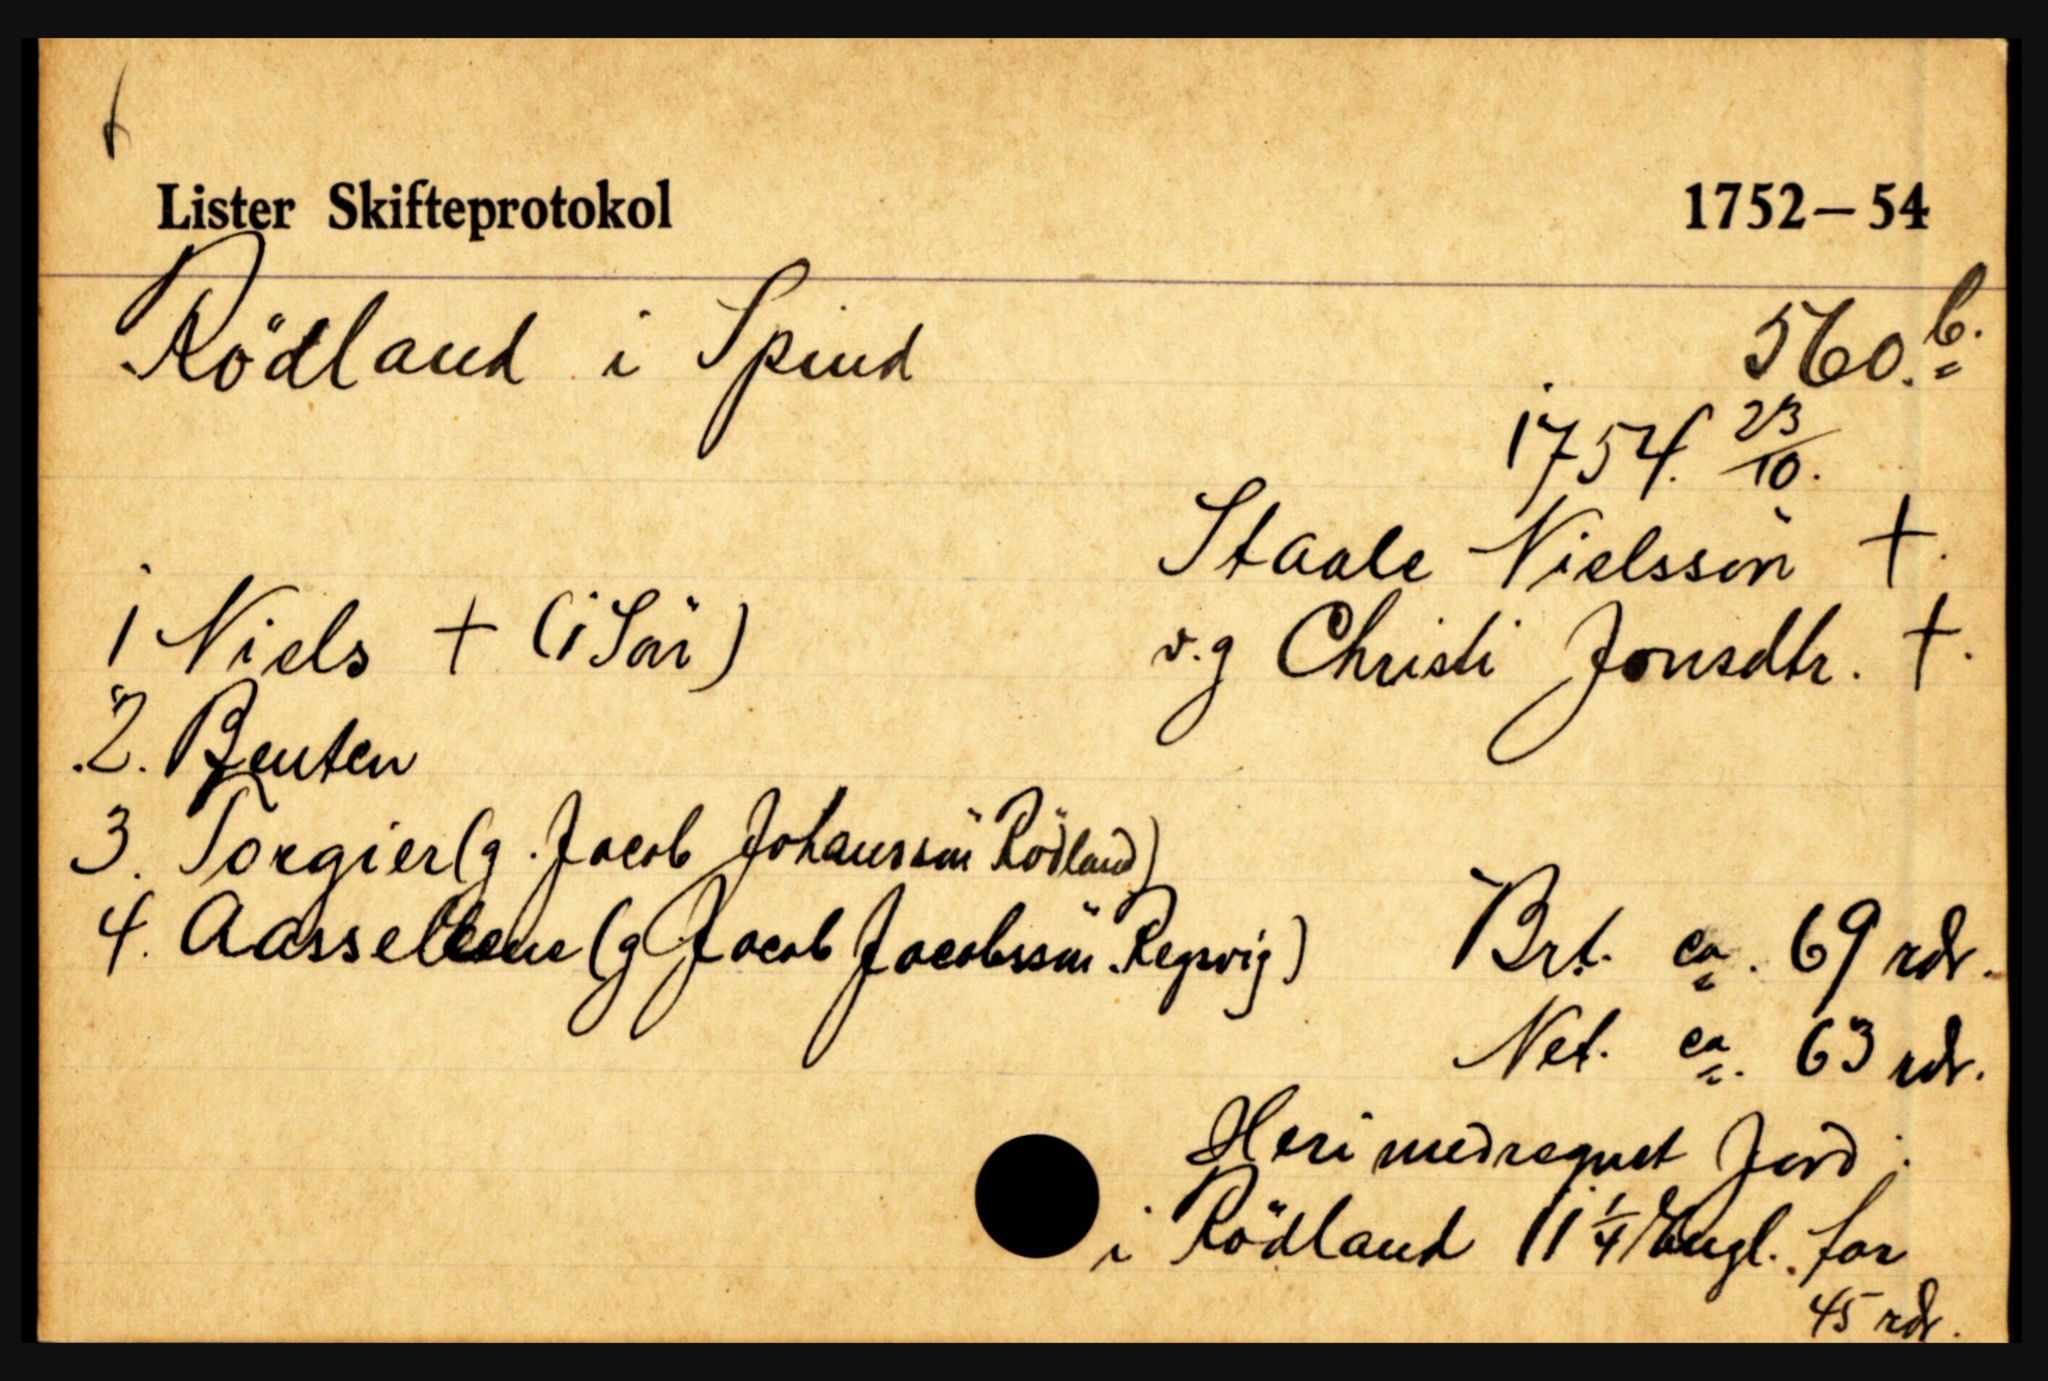 Lister Skifteprotokol 1752-54
Rödland i Spind 560.b.
1754. 23/10.
Staale Nielssön +.
1 Niels + (1 Sön)
v.g Christi Jonsdtr. +.
2. Benten
3. Torgier (g. Jacob Johanssön Rödland)
4. Aassellene (g Jacob Jacobssön Repvig)
Brt. ca. 69 rdr.
Net. ca. 63 rdr.
Heri medregnet Jord i
i Rödland 11 1/4 Engl. for
45 rdr.